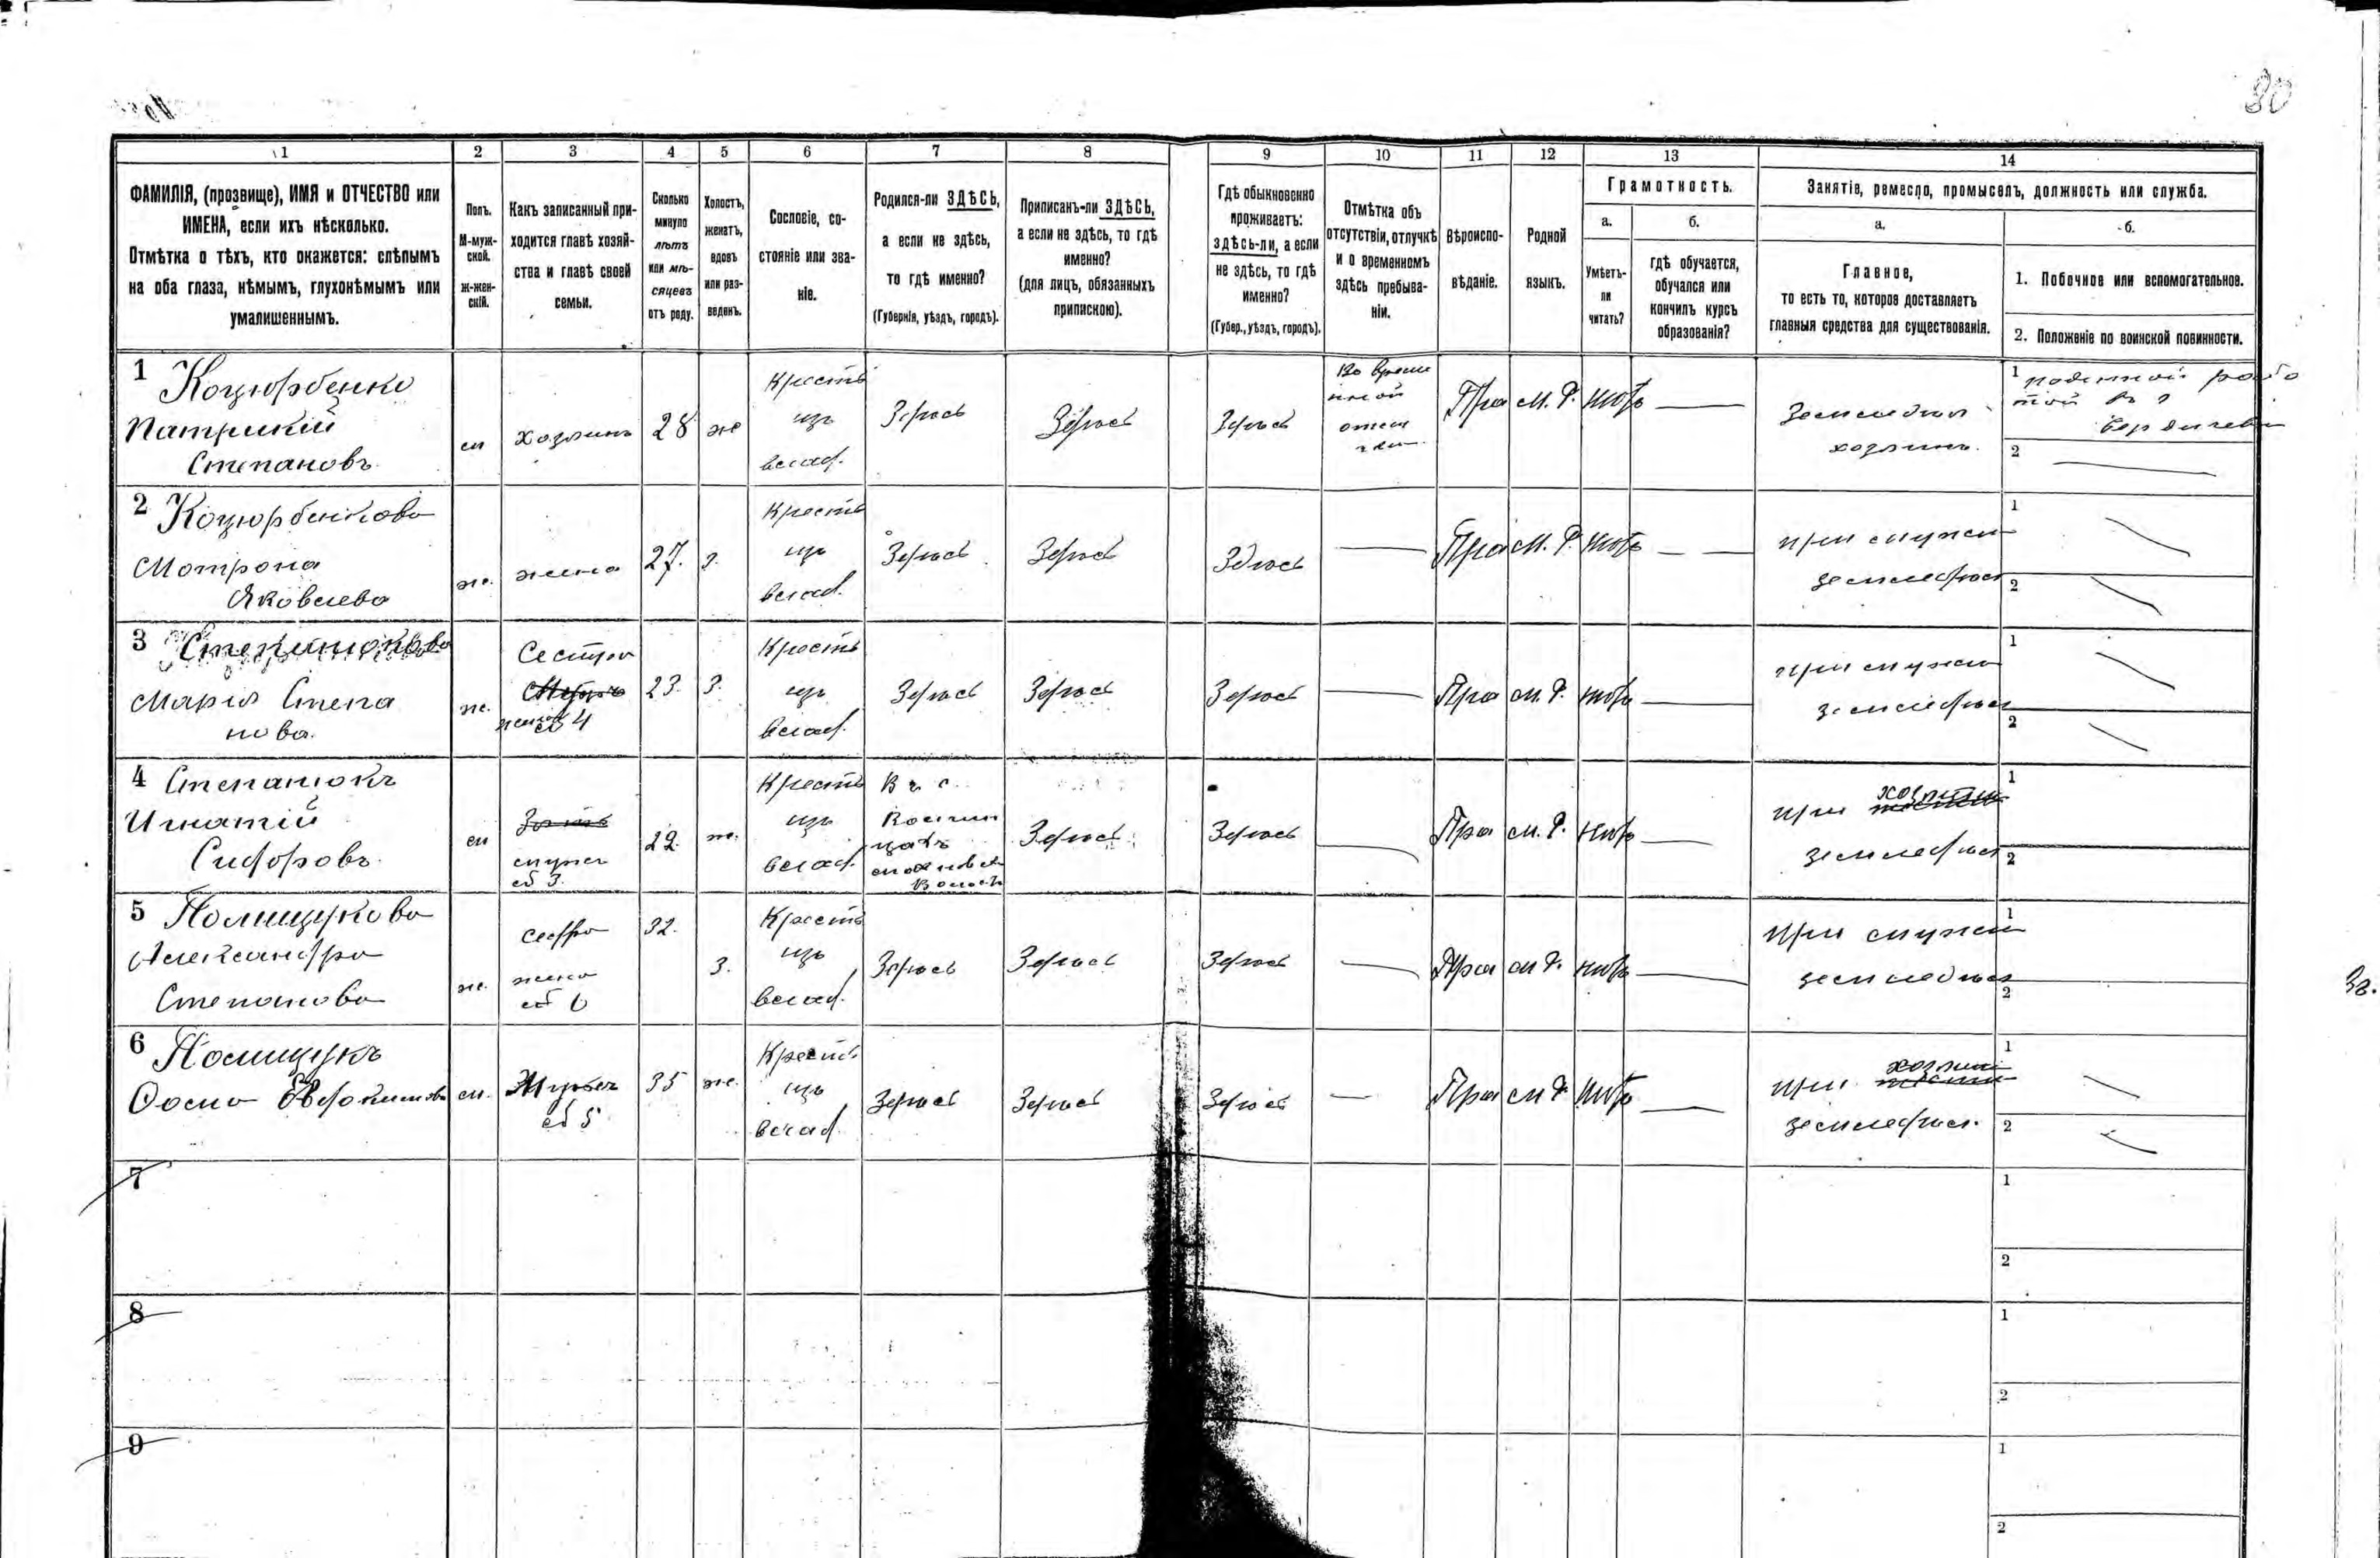 80
1 2 3 4 5 6 7 8 9 10 11 12 13 14
ФАМИЛІЯ, (прозвище), ИМЯ и ОТЧЕСТВО или
ИМЕНА, если ихъ нѣсколько.
Отмѣтка о тѣхъ, кто окажется: слѣпымъ
на оба глаза, нѣмымъ, глухонѣмымъ или
умалишеннымъ.
Полъ.
М-муж-
ской.
Ж-жен-
скій.
Какъ записанный при-
ходится главѣ хозяй-
ства и главѣ своей
семьи.
Сколько
минуло
лѣтъ
или мѣ-
сяцевъ
отъ роду.
Холостъ,
женатъ,
вдовъ
или раз-
веденъ.
Сословіе, со-
стояніе или зва-
ніе.
Родился-ли ЗДѢСЬ,
а если не здѣсь,
то гдѣ именно?
(Губернія, уѣздъ, городъ).
Приписанъ-ли ЗДѢСЬ,
а если не здѣсь, то гдѣ
именно?
(для лицъ, обязанныхъ
припискою).
Гдѣ обыкновенно
проживаетъ:
здѣсь-ли, а если
не здѣсь, то гдѣ
именно?
(Губер., уѣздъ, городъ).
Отмѣтка объ
отсутствіи, отлучкѣ
и о временномъ
здѣсь пребыва-
ніи.
Вѣроиспо-
вѣданіе.
Родной
языкъ.
Грамотность.
а.
Умѣетъ-
ли
читать?
б.
гдѣ обучается,
обучался или
кончилъ курсъ
образованія?
Занятіе, ремесло, промыселъ, должность или служба.
а.
Главное,
то есть то, которое доставляетъ
главныя средства для существованія.
б.
1. Побочное или вспомогательное.
2. Положеніе по воинской повинности.
1 Коцюрбенко
Патрикій
Степановъ
м
хозяинъ
28
же
Кресть
изъ
влад.
Здѣсь
Здѣсь
Здѣсь
Во време
нной
отлу
Пра
м. Р.
нѣтъ
Земледѣл
хозяинъ.
1 поденной рабо
той въ г
Бердичеви
2
2 Коцюрбенкова
Мотрона
Яковлева
же.
жена
27.
з.
Кресть
изъ
влад.
Здѣсь
Здѣсь
Здѣсь
Пра
м. Р.
нѣтъ
при мужи
земледѣл
1
2
3 Степанюкова
Марія Степа
нова.
же.
Сестра
жена
м 4
23.
З.
Кресть
изъ
влад.
Здѣсь
Здѣсь
Здѣсь
Пра
м. Р.
нѣтъ
при мужи
земледѣл
1
2
4 Степанюкъ
Игнатій
Сидоровъ.
м
мужъ
м 3.
22.
же.
Кресть
изъ
влад.
Въ с.
Здѣсь
Здѣсь
Пра
м. Р.
нѣтъ
при хозяин
земледѣл
1
2
5 Полищукова
Александра
Степанова
же.
сестра
жена
м 6
32.
З.
Кресть
изъ
влад.
Здѣсь
Здѣсь
Здѣсь
Пра
м Р.
нѣтъ
при мужи
земледѣл
1
2
6 Полищукъ
м.
Мужъ
м 5
35
же.
Кресть.
изъ
влад.
Здѣсь
Здѣсь
Здѣсь
Пра
м Р
нѣтъ
при хозяин
земледѣл.
1
2
7
1
2
8
1
2
9
1
2